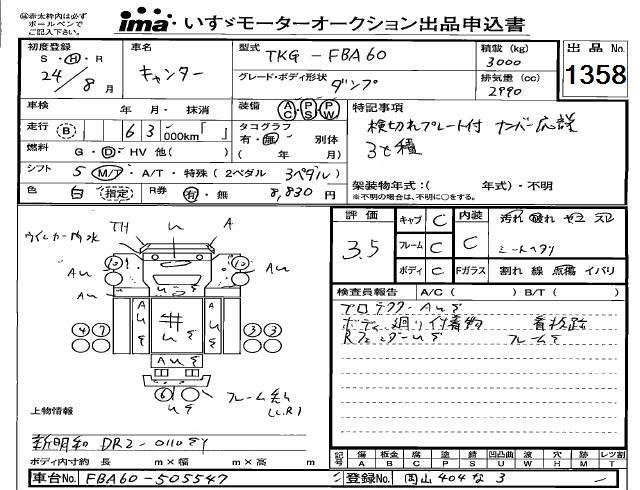 ㊟赤太枠内は必ず
ボールペンで
ご記入下さい。
ima・いすゞモーターオークション出品申込書
初度登録
S・H・R
24/8月
車名
キャンター
型式
TKG-FBA60
グレード・ボディ形状
ダンプ
積載(kg)
3000
排気量(cc)
2990
出品No.
1358
車検 年 月・抹消
走行 (B) 63 000km「 」
燃料 G・D・HV 他( )
シフト 5 M/T・A/T・特殊(2ペダル 3ペダル)
色 白 指定 R券 有・無 8,830円
装備 AC PS PW
タコグラフ
有・無・別体
( 年 月)
特記事項
検切れプレート付 ナンバー応談
3t積
架装物年式:( 年式)・不明
※不明の場合は、不明に○をする。
評価
3.5
キャブ C
フレーム C
ボディ C
内装
C
Fガラス
汚れ 破れ ヤコゲ スレ
シートヘタリ
割れ 線 点傷 イバリ
検査員報告 A/C( ) B/T( )
ボディ廻り付着物 看板跡
RフェンダーUE フレームE
ウインカー内水
TH U A
AU AU
AU
12 12
4 7 3 3
AUE
AUE
AUE
6
UE
(L.R)
上物情報
新明和 DR2-0110
ボディ内寸約 長 m×幅 m×高 m
記号 傷 板金 腐 塗 錆 凹凸曲 波 穴 跡 レンズ割
A B C P S U W H M T
車台No. FBA60-505547
登録No. 岡山 404 な 3